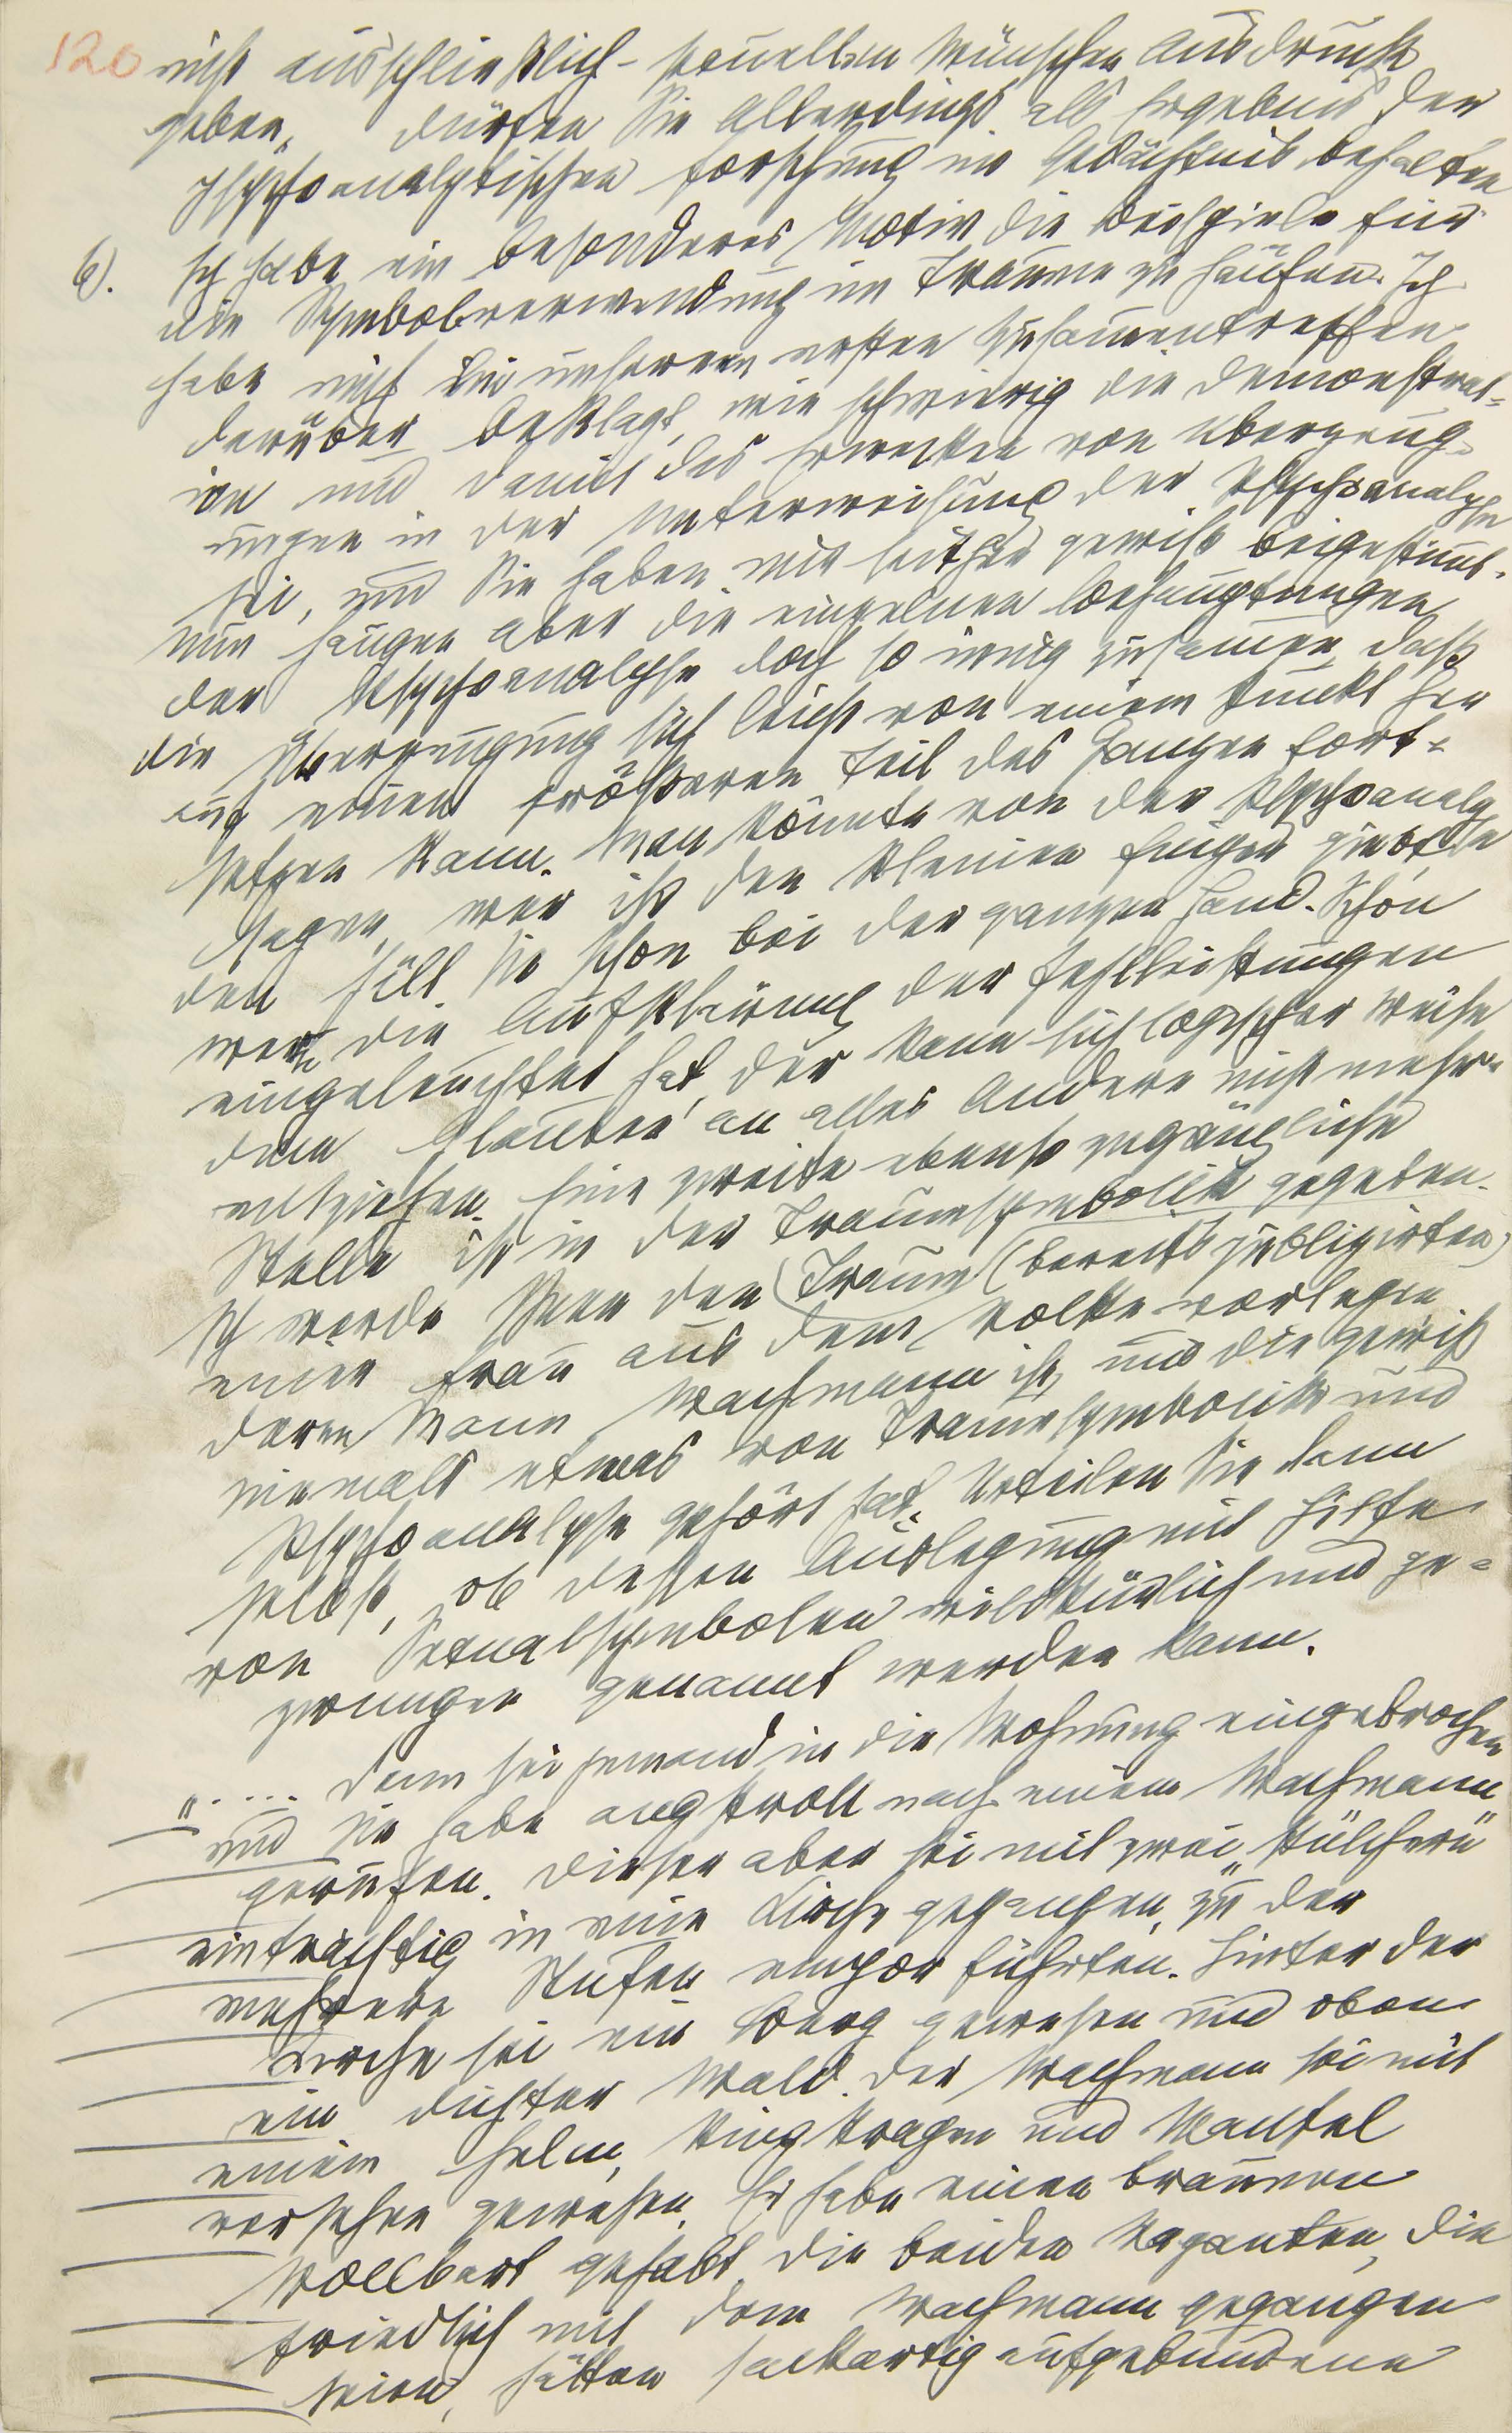 120 nicht ausschließlich-sexuellen Wünschen Ausdruck
geben, dürfen Sie allerdings als Ergebnis der
psychoanalytischen Forschung im Gedächtnis behalten
6). Ich habe ein besonderes Motiv die Beispiele für
die Symbolverwendung im Traume zu häufen. Ich
habe mich bei unserem ersten Zusammentreffen
darüber beklagt, wie schwierig die Demonstrat-
ion und damit das Erwecken von Überzeug-
ungen in der Unterweisung der Psychoanalyse
sei, und Sie haben mir seither gewiß beigestimmt.
Nun hängen aber die einzelnen Behauptungen
der Psychoanalyse doch so innig zusammen, daß
die Überzeugung sich leicht von einem Punkt her
auf einen größeren Teil des Ganzen fort-
setzen kann. Man könnte von der Psychoanalyse
sagen, wer ihr den kleinen Finger giebt
den hält sie schon bei der ganzen Hand. Schon
wem die Aufklärung der Fehlleistungen
eingeleuchtet hat, der kann sich logischer Weise
dem Glauben an alles Andere nicht mehr
entziehen. Eine zweite ebenso zugängliche
Stelle ist in der Traumsymbolik gegeben.
Ich werde Ihnen den Traum (bereits publizirten)
einer Frau aus dem Volke vorlegen
deren Mann Wachmann ist, und die gewiß
niemals etwas von Traumsymbolik und
Psychoanalyse gehört hat. Urteilen Sie dann
selbst, ob dessen Auslegung mit Hilfe
von Sexualsymbolen willkürlich und ge-
zwungen genannt werden kann.
„ ..... Dann sei jemand in die Wohnung eingebrochen
und sie habe angstvoll nach einem Wachmann
gerufen. Dieser aber sei mit zwei „Pülchern"
einträchtig in eine Kirche gegangen, zu der
mehrere Stufen empor führten. Hinter der
Kirche sei ein Berg gewesen und oben
ein dichter Wald. Der Wachmann sei mit
einem Helm, Ringkragen und Mantel
versehen gewesen. Er habe einen braunen
Vollbart gehabt. Die beiden Vaganten, die
friedlich mit dem Wachmann gegangen
seien, hätten sackartig aufgebundene